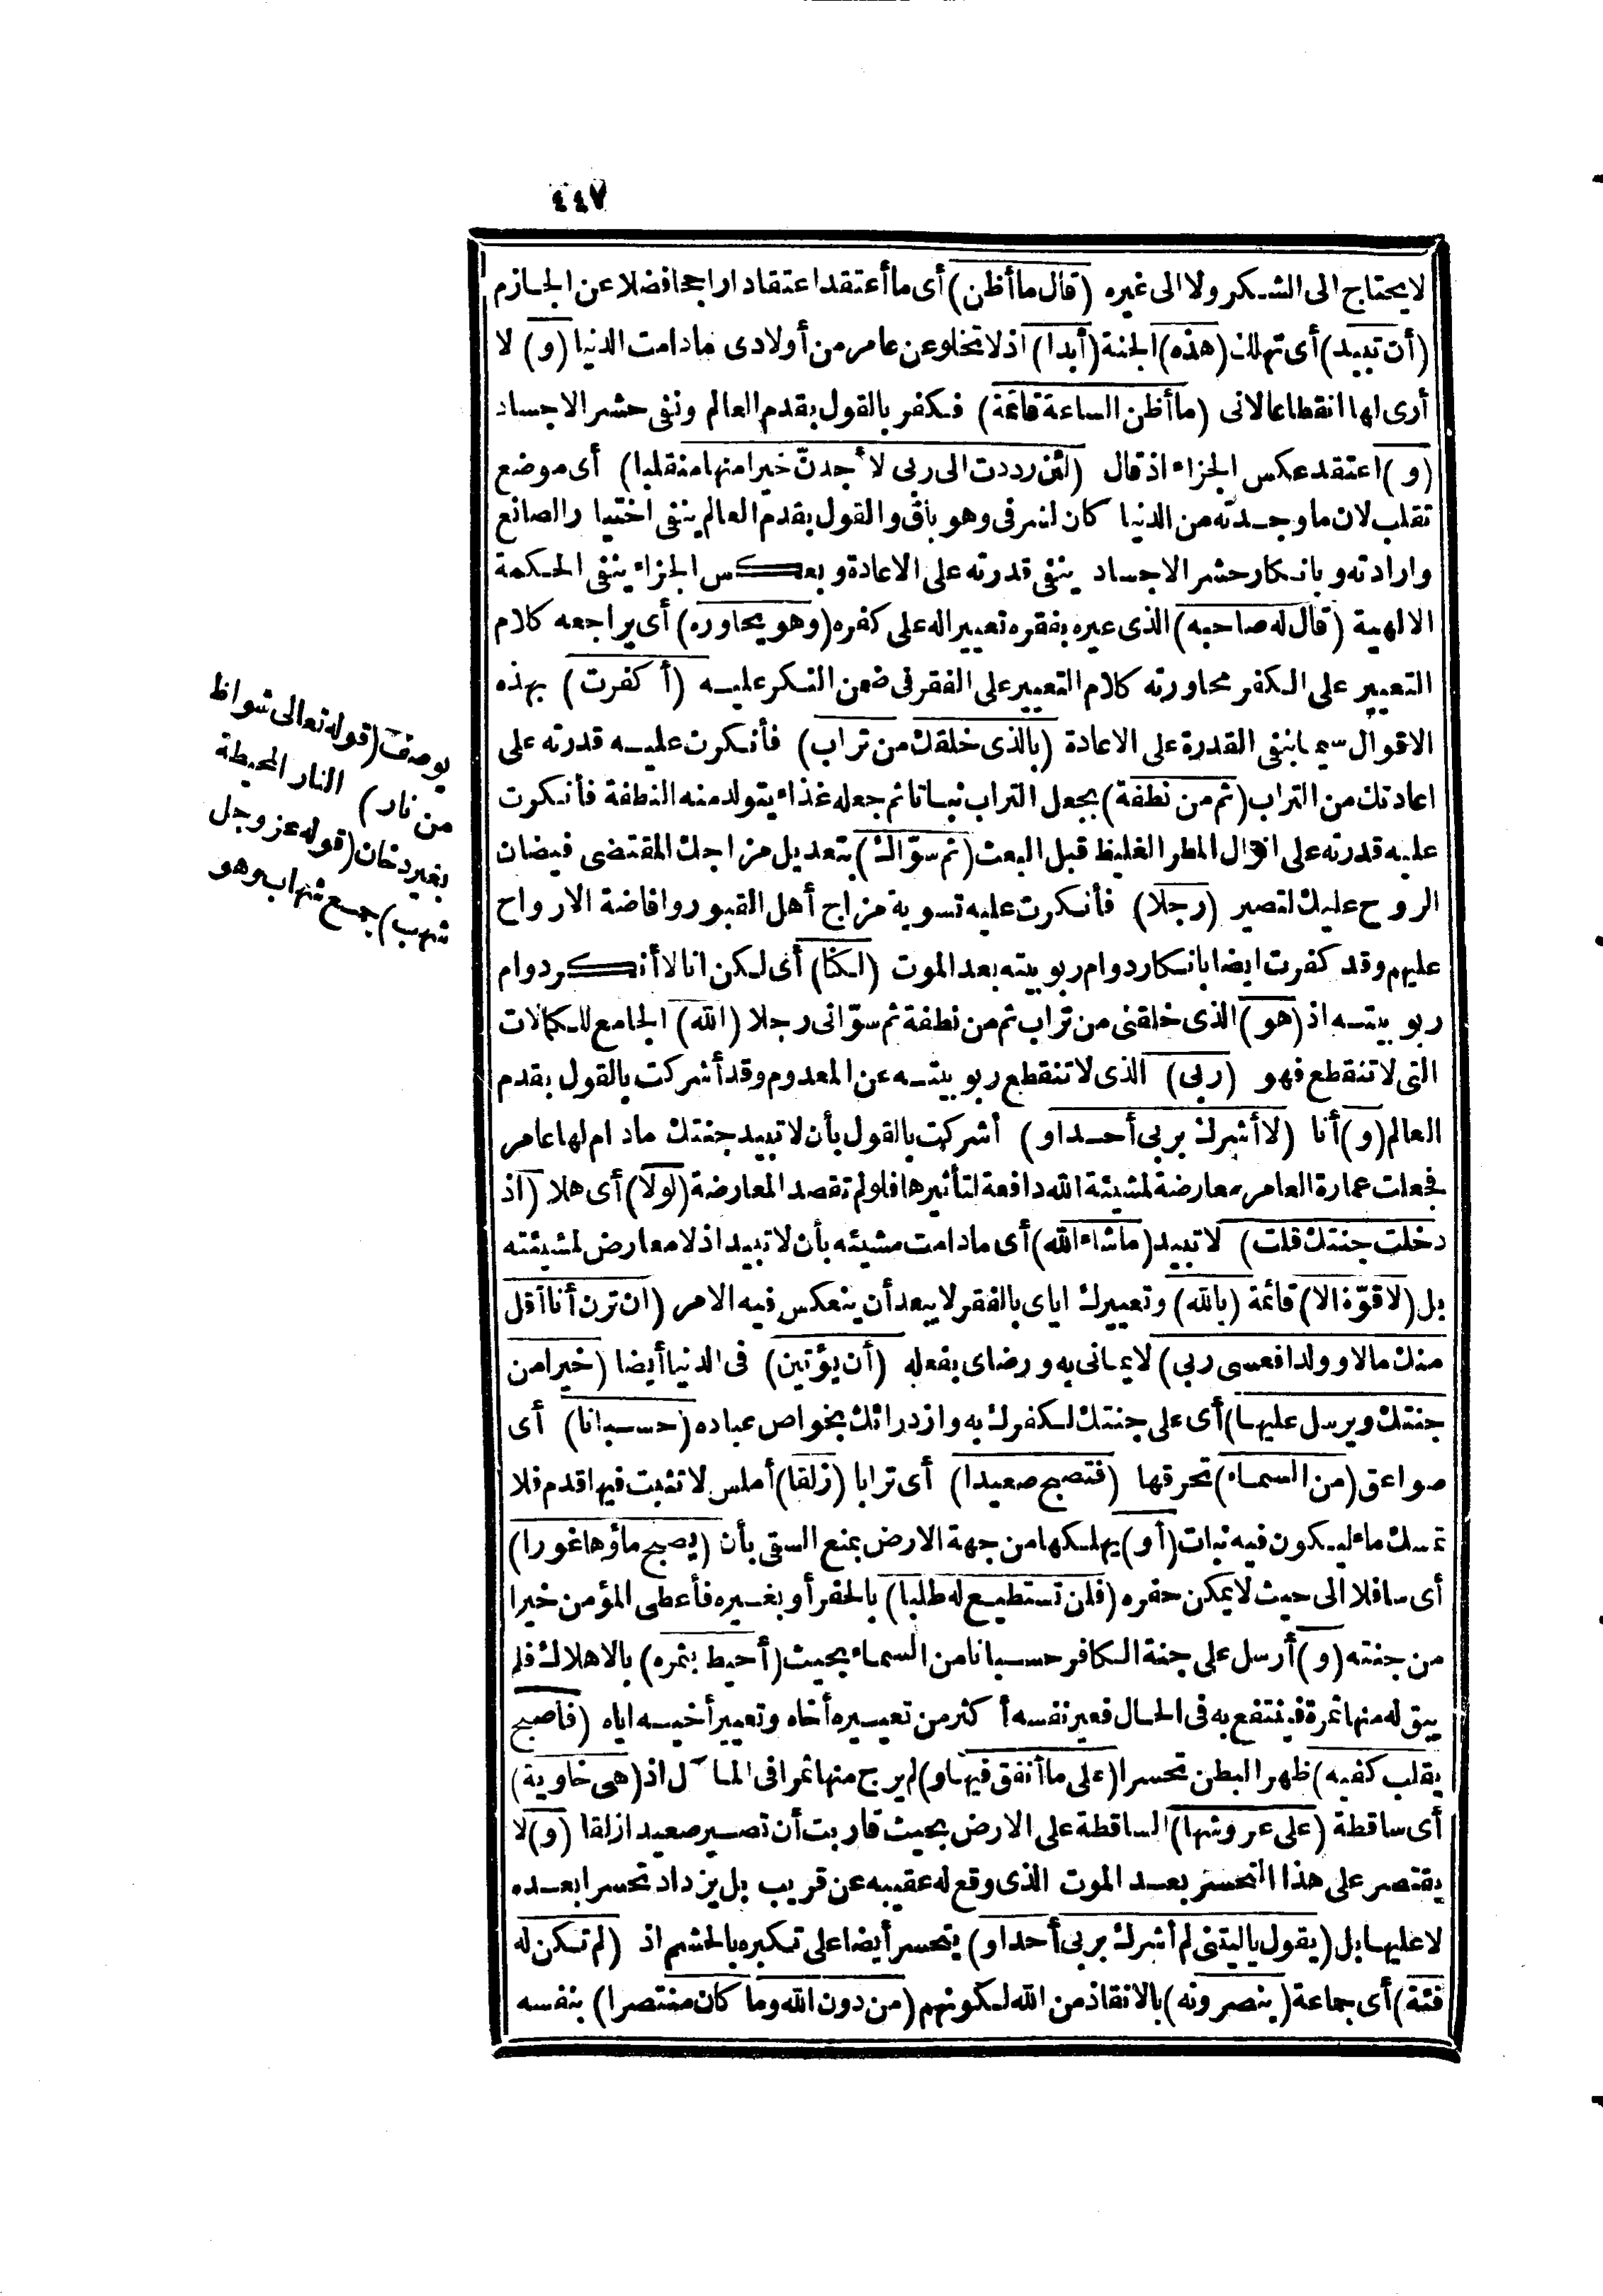 ٤٤٧
لا يحتاج الى الشكر ولا الى غيره (قال ما أظن) أى ما أعتقد اعتقادا راجحا فضلا عن الجازم
(أن تبيد) أى تهلك (هذه) الجنة (أبدا) اذ لا تخلو عن عامر من أولادى ما دامت الدنيا (و) لا
أرى لها انقطاعا لانى (ما أظن الساعة قائمة) فكفر بالقول بقدم العالم ونفى حشر الاجساد
(و) اعتقد عكس الجزاء اذ قال (لئن رددت الى ربى لأجدنّ خيرا منها منقلبا) أى موضع
تقلب لان ما وجدته من الدنيا كان لشرفى وهو باق والقول بقدم العالم ينفى اختيار الصانع
وارادته وبانكار حشر الاجساد ينفى قدرته على الاعادة وبعكس الجزاء ينفى الحكمة
الالهية (قال له صاحبه) الذى عيره بفقره تعييرا له على كفره (وهو يحاوره) أى يراجعه كلام
التعيير على الكفر محاورته كلام التعيير على الفقر فى ضمن النكر عليه (أ كفرت) بهذه
الاقوال سيما بنفى القدرة على الاعادة (بالذى خلقك من تراب) فأنكرت عليه قدرته على
اعادتك من التراب (ثم من نطفة) بجعل التراب نباتا ثم جعله غذاء يتولد منه النطفة فأنكرت
عليه قدرته على انزال المطر الغليظ قبل البعث (ثم سوّاك) بتعديل مزاجك المقتضى فيضان
الروح عليك لتصير (رجلا) فأنكرت عليه تسوية مزاج أهل القبور وافاضة الارواح
عليهم وقد كفرت ايضا بانكار دوام ربوبيته بعد الموت (لكنا) أى لكن انا لا أنكر دوام
ربوبيته اذ (هو) الذى خلقنى من تراب ثم من نطفة ثم سوّانى رجلا (الله) الجامع للكمالات
التى لا تنقطع فهو (ربى) الذى لا تنقطع ربوبيته عن المعدوم وقد أشركت بالقول بقدم
العالم (و) أنا (لا أشرك بربى أحدا و) أشركت بالقول بأن لا تبيد جنتك ما دام لها عامر
فجعلت عمارة العامر معارضة لمشيئة الله دافعة لتأثيرها فلو لم تقصد المعارضة (لولا) أى هلا (اذ
دخلت جنتك قلت) لا تبيد (ما شاء الله) أى ما دامت مشيئته بأن لا تبيد اذ لا معارض لمشيئته
بل (لا قوّة الا) قائمة (بالله) وتعييرك اياى بالفقر لا يبعد أن ينعكس فيه الامر (ان ترن أنا أقل
منك مالا وولدا فعسى ربى) لايمانى به ورضاى بفعله (أن يؤتين) فى الدنيا أيضا (خيرا من
جنتك ويرسل عليها) أى على جنتك لكفرك به وازدرائك بخواص عباده (حسبانا) أى
صواعق (من السماء) تحرقها (فتصبح صعيدا) أى ترابا (زلقا) أملس لا تثبت فيها قدم فلا
تمسك ماء ليكون فيه نبات (أو) يهلكها من جهة الارض بمنع السقى بأن (يصبح ماؤها غورا)
أى سافلا الى حيث لا يمكن حفره (فلن تستطيع له طلبا) بالحفر أو بغيره فأعطى المؤمن خيرا
من جنته (و) أرسل على جنة الكافر حسبانا من السماء بحيث (أحيط بثمره) بالاهلاك فلم
يبق له منها ثمرة فينتفع به فى الحال فعير نفسه أ كثر من تعييره أخاه وتعيير أخيه اياه (فأصبح
يقلب كفيه) ظهرا لبطن تحسرا (على ما أنفق فيها و) لم يرج منها ثمرا فى المآ ل اذ (هى خاوية)
أى ساقطة (على عروشها) الساقطة على الارض بحيث قاربت أن تصير صعيدا زلقا (و) لا
يقتصر على هذا التحسر بعد الموت الذى وقع له عقيبه عن قريب بل يزداد تحسرا بعده
لا عليها بل (يقول يا ليتنى لم أشرك بربى أحدا و) يتحسر أيضا على تكبره بالحشم اذ (لم تكن له
فئة) أى جماعة (ينصرونه) بالانقاذ من الله لكونهم (من دون الله وما كان منتصرا) بنفسه
يوصف (قوله تعالى شواظ
من نار) النار المحيطة
بغير دخان (قوله عز وجل
شهب) جمع شهاب وهو